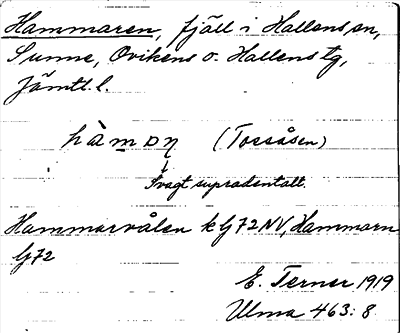 Hammaren, fjäll i Hallens sn,
Sunne, Ovikens o. Hallens tg,
Jämtl. l.
hàmɒn (Tossåsen)
Svagt supradentalt.
Hammarvålen k G72NV, Hammarn
G72
E. Terner 1919
Ulma 463:8.